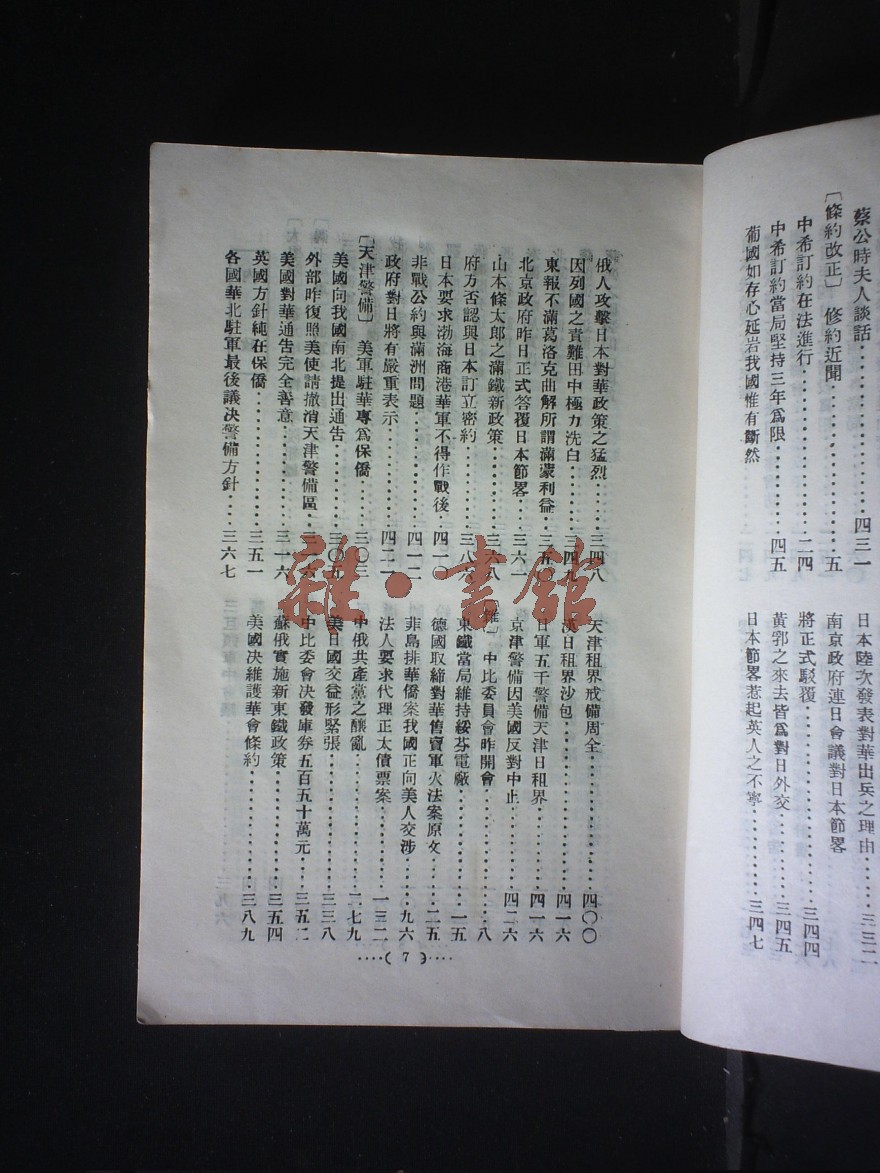 蔡公時夫人談話................四三一
〔條約改正〕 修約近聞................五
中希訂約在法進行................二四
中希訂約當局堅持三年爲限........四五
葡國如存心延岩我國惟有斷然
日本陸次發表對華出兵之理由......三三二
南京政府連日會議對日本節畧
將正式駁覆................三四四
黃郛之來去皆爲對日外交........三四五
日本節畧惹起英人之不寧........三四七
俄人攻擊日本對華政策之猛烈......三四八
因列國之責難田中極力洗白........三四九
東報不滿葛洛克曲解所謂滿蒙利益..三五〇
北京政府昨日正式答覆日本節畧....三六一
山本條太郎之滿鐵新政策........三六八
府方否認與日本訂立密約........三八六
日本要求渤海商港華軍不得作戰後..四一〇
非戰公約與滿洲問題............四一二
政府對日將有嚴重表示..........四二一
〔天津警備〕 美軍駐華專爲保僑......三〇三
美國向我國南北提出通告........三〇五
外部昨復照美使請撤消天津警備區
美國對華通告完全善意..........三一六
英國方針純在保僑..............三五一
各國華北駐軍最後議決警備方針....三六七
天津租界戒備周全..............四〇〇
漢日租界沙包................四一六
日軍五千警備天津日租界........四一六
京津警備因美國反對中止........四二六
〔雜〕 中比委員會昨開會........八
東鐵當局維持綏芬電廠..........一五
德國取締對華售賣軍火法案原文....二五
菲島排華僑案我國正向美人交涉....九六
法人要求代理正太債票案........一三二
中俄共產黨之釀亂..............二七九
美日國交益形緊張..............三三八
中比委會決發庫券五百五十萬元....三五二
蘇俄實施新東鐵政策............三五四
美國決維護華會條約............三八九
····( 7 )····
雜·書館